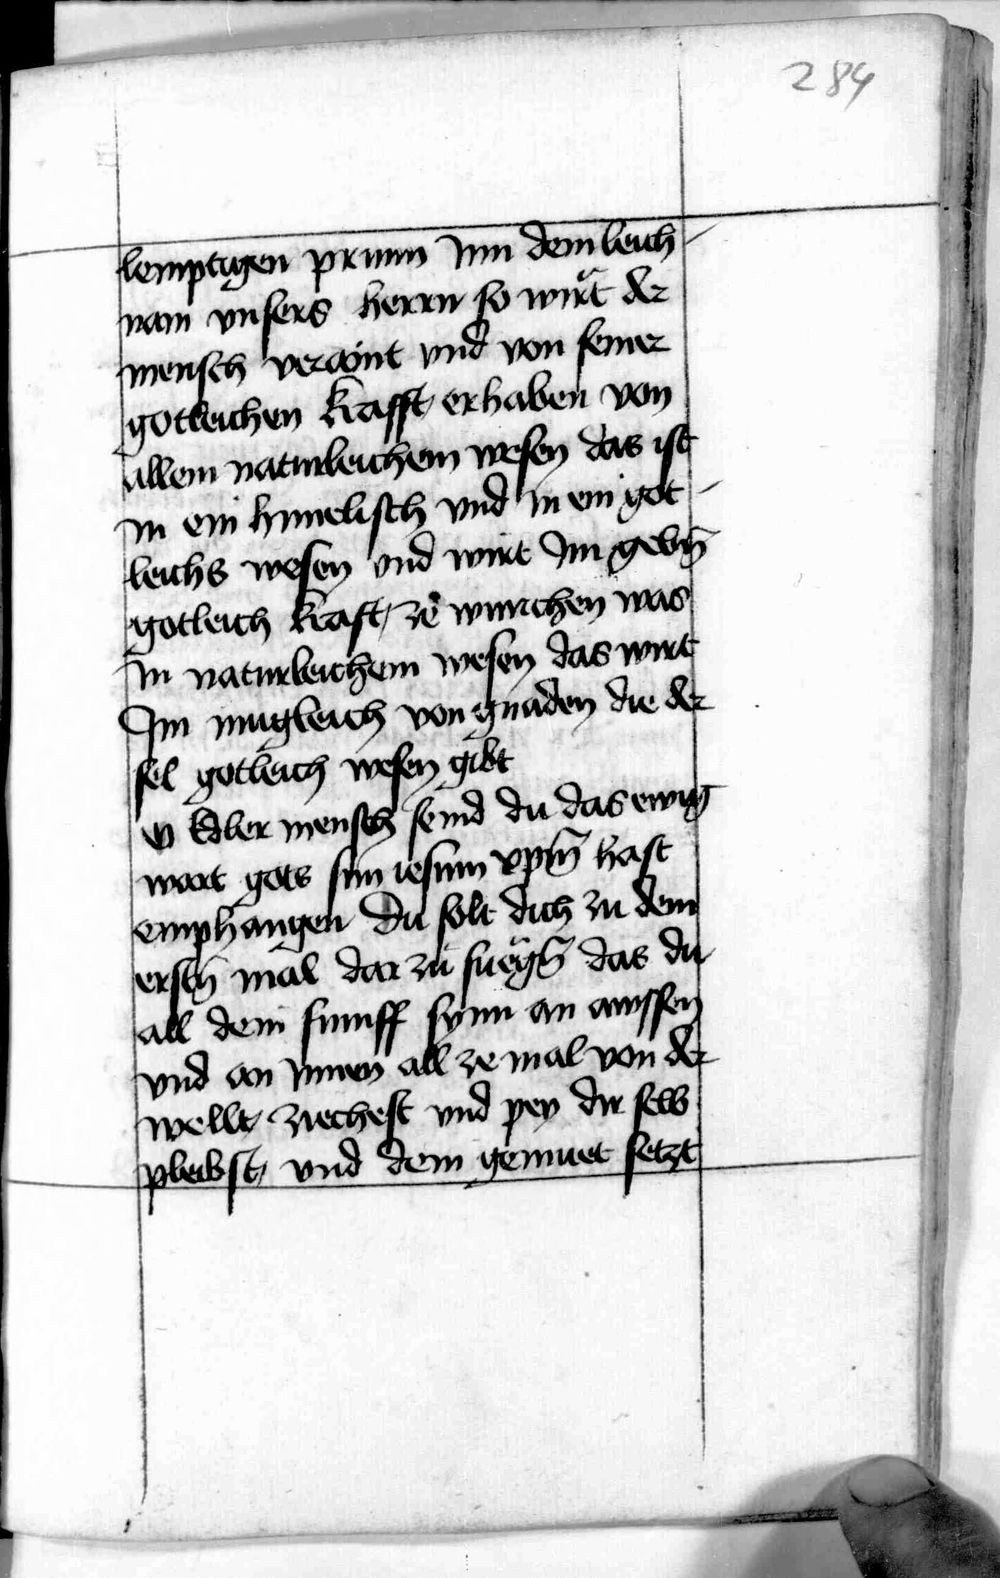 284
lemptigen prunn Inn dem leich-
nam vnsers herrn so wirt der
mensch veraint vnd von seiner
gotleichen krafft erhaben von
allem naturleichem wesen das ist
in ein himelisch vnd in ein got-
leichs wesen vnd wirt Im gebn̄
gotleich kraft ze wurchen was
In naturleichem wesen das wirt
Im mugleich von gnaden die der
sel gotleich wesen gibt
O Edler mensch seind du das ewig
wort gots sun iesum xpm̄ hast
emphangen Du solt dich zu dem
erstn̄ mal dar zu fuegn̄ das du
all dein funff synn an awssen
vnd an Innen all ze mal von der
wellt ziechest vnd pey dir selb
pleibst vnd dein gemuet setzt